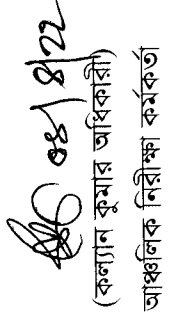 ০৪/৪/২২
(কল্যান কুমার অধিকারী)
আঞ্চলিক নিরীক্ষা কর্মকর্তা